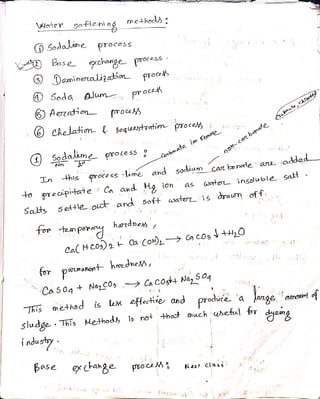 Water softening methods :
① Sodalime process
② Base exchange process.
③ Demineralization process
④ Soda Alum process
⑤ Aeration process
⑥ Chelation & sequestration process
① Sodalime process :
carbonate
non-carbonate
In this process lime and sodium carbonate are added
to precipitate Ca and Mg ion as water insoluble salt.
Salts settle out and soft water is drawn off.
for temporary hardness,
Ca(HCO3)2 + Ca(OH)2 → CaCO3 ↓ + H2O
for permanent hardness,
CaSO4 + Na2CO3 → CaCO3↓ + Na2SO4
This method is less effective and produce a large amount of
sludge. This Methods is not that much useful for dyeing
industry.
Base exchange process : Next Class